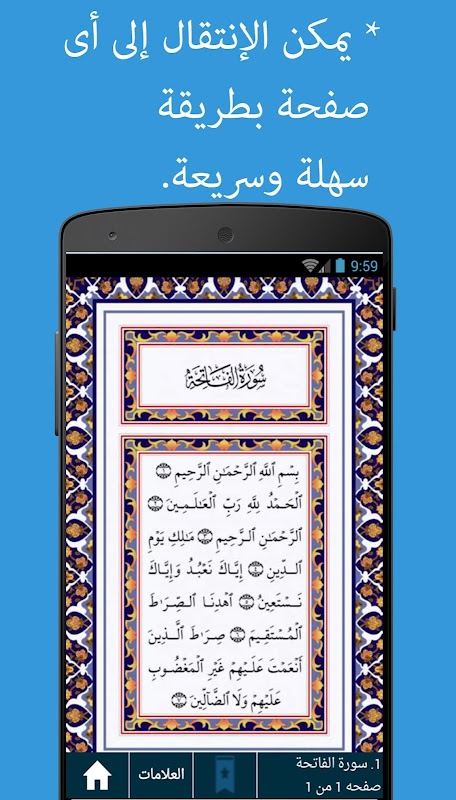 * يمكن الإنتقال إلى أى
صفحة بطريقة
سهلة وسريعة.
9:59
سُورَةُ الفَاتِحَةِ
بِسْمِ ٱللَّهِ ٱلرَّحْمَٰنِ ٱلرَّحِيمِ ١
ٱلْحَمْدُ لِلَّهِ رَبِّ ٱلْعَٰلَمِينَ ٢
ٱلرَّحْمَٰنِ ٱلرَّحِيمِ ٣ مَٰلِكِ يَوْمِ
ٱلدِّينِ ٤ إِيَّاكَ نَعْبُدُ وَإِيَّاكَ
نَسْتَعِينُ ٥ ٱهْدِنَا ٱلصِّرَٰطَ
ٱلْمُسْتَقِيمَ ٦ صِرَٰطَ ٱلَّذِينَ
أَنْعَمْتَ عَلَيْهِمْ غَيْرِ ٱلْمَغْضُوبِ
عَلَيْهِمْ وَلَا ٱلضَّآلِّينَ ٧
1. سورة الفاتحة
صفحه 1 من 1
العلامات